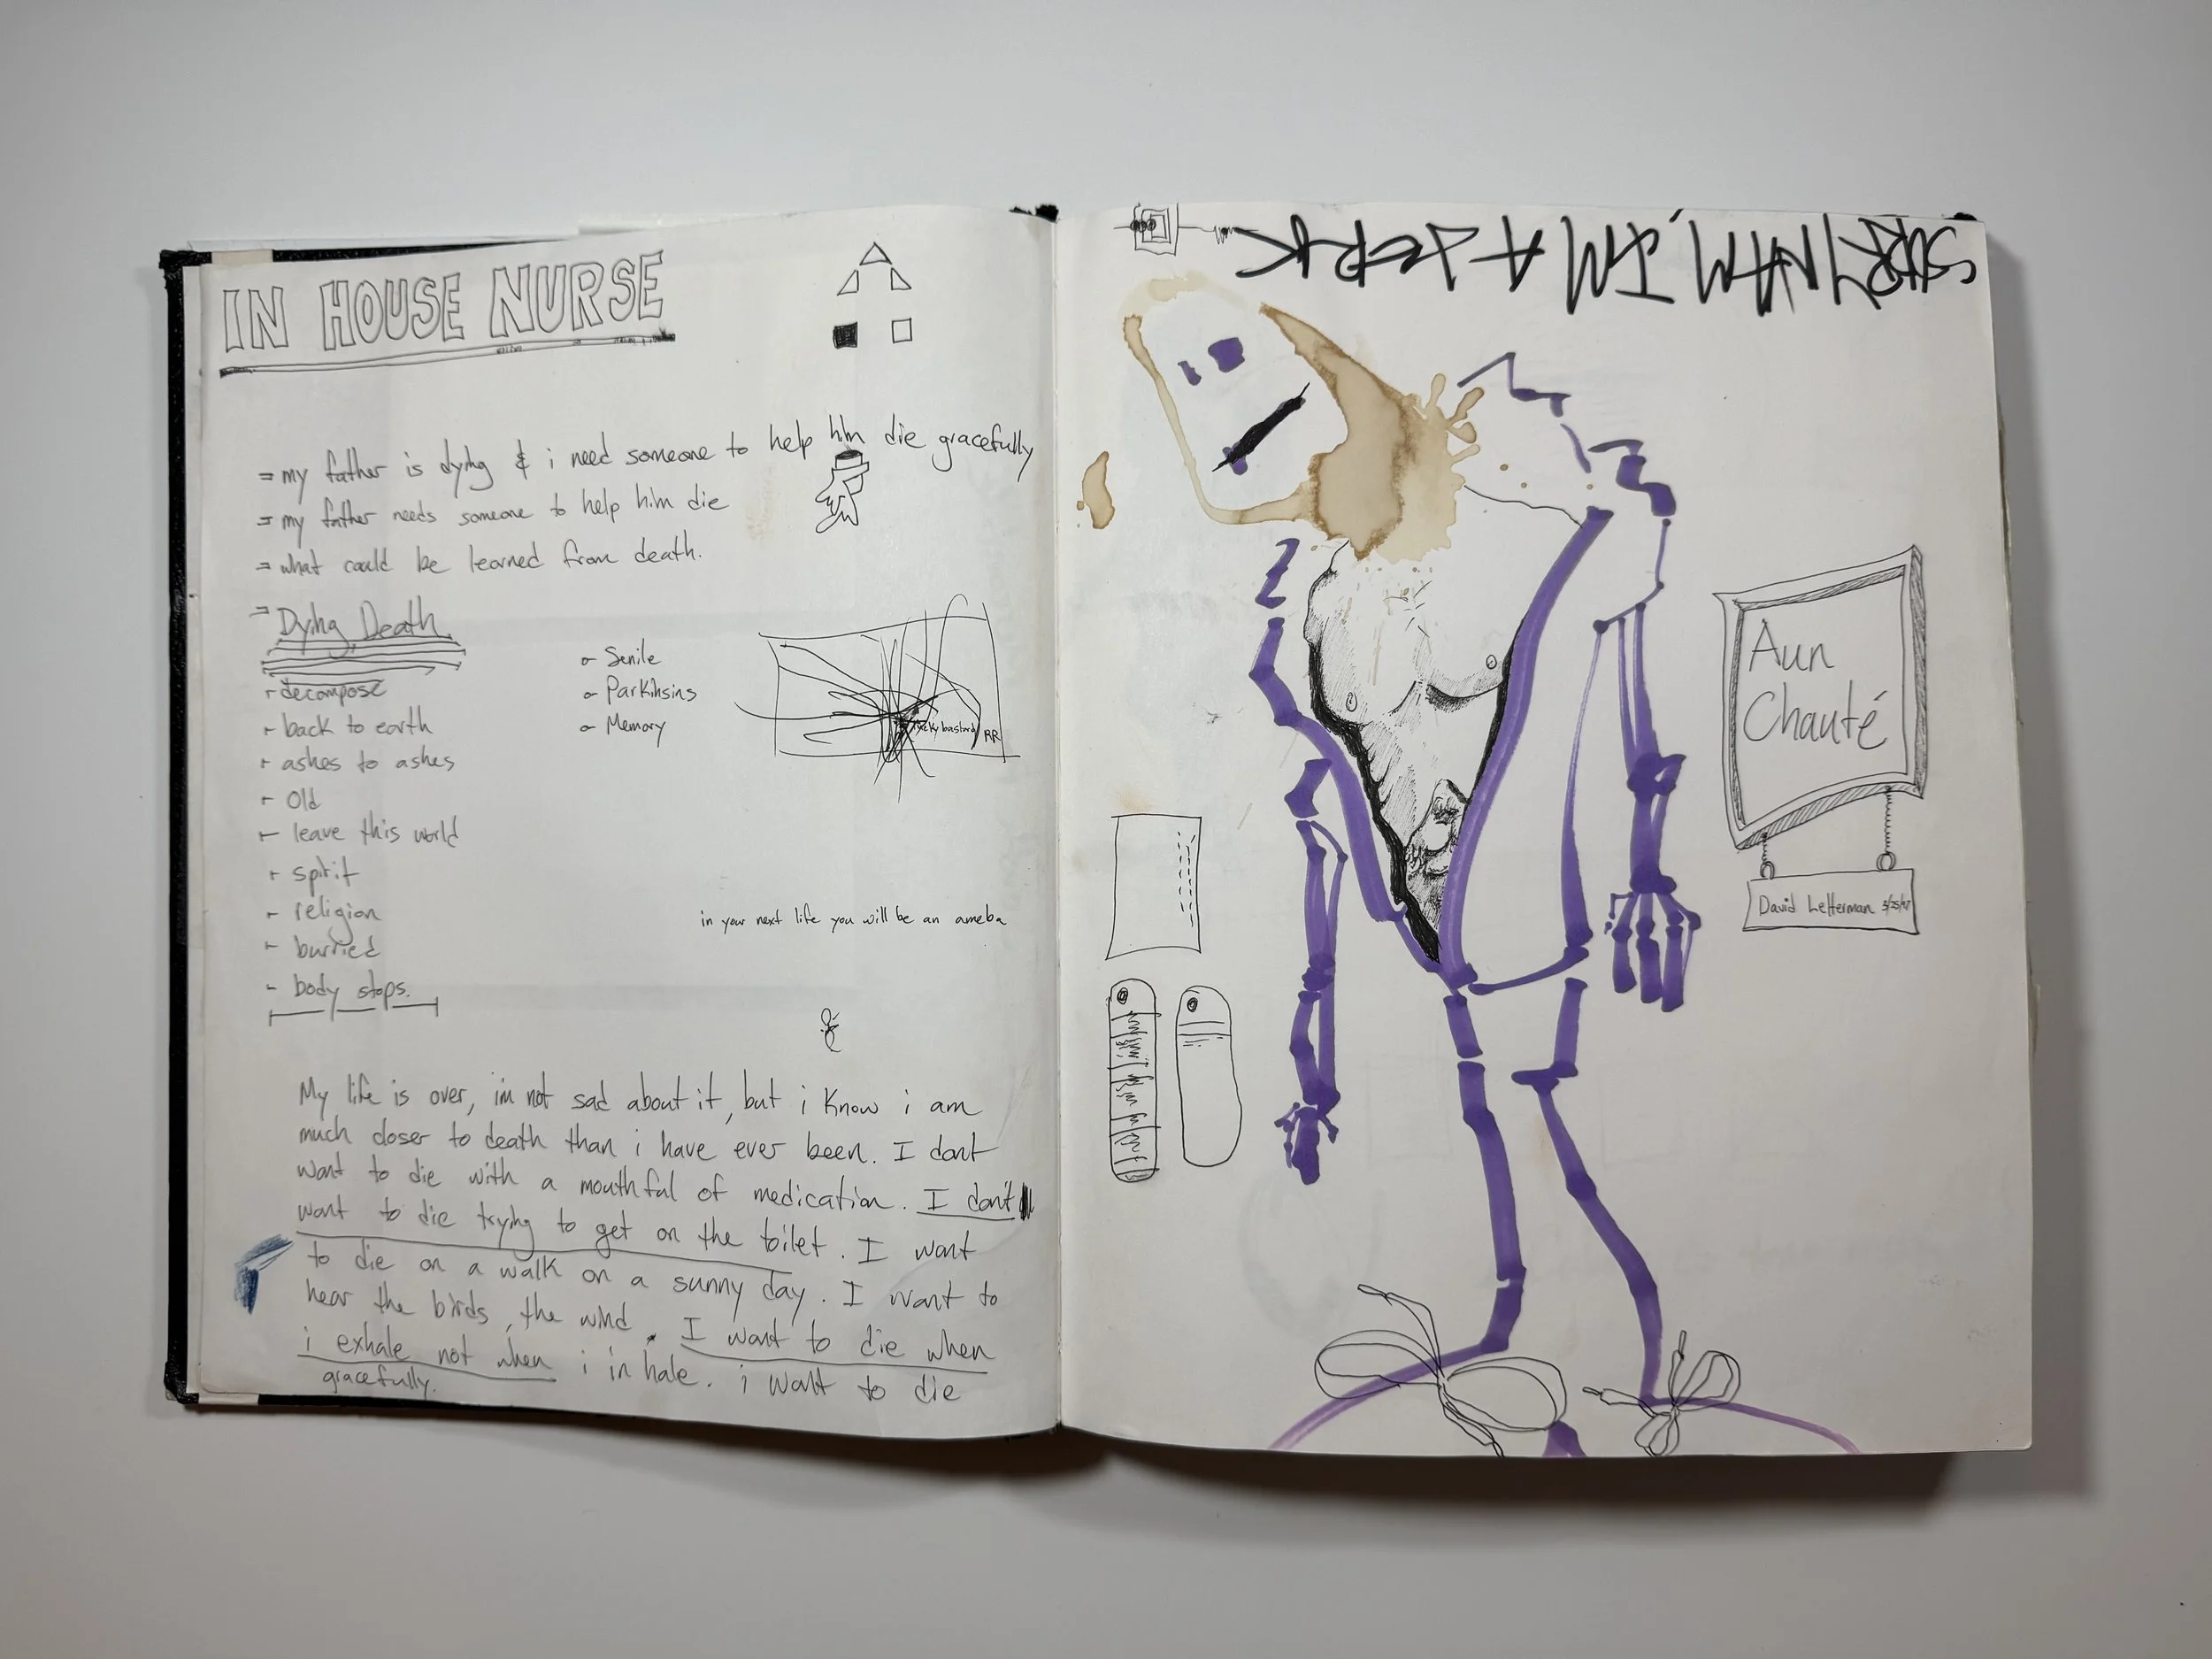 IN HOUSE NURSE
= my father is dying & i need someone to help him die gracefully
= my father needs someone to help him die
= what could be learned from death.
= Dying, Death
- decompose
- back to earth
- ashes to ashes
- Old
- leave this world
- spirit
- religion
- burried
- body stops.
- Senile
- Parkinsins
- Memory
bastard RR
in your next life you will be an ameba
My life is over, im not sad about it, but i know i am
much closer to death than i have ever been. I dont
want to die with a mouthful of medication. I don't
want to die trying to get on the toilet. I want
to die on a walk on a sunny day. I want to
hear the birds, the wind. I want to die when
i exhale not when i inhale. i want to die
gracefully.
I'M A JERK
Aun
Chauté
David Letterman